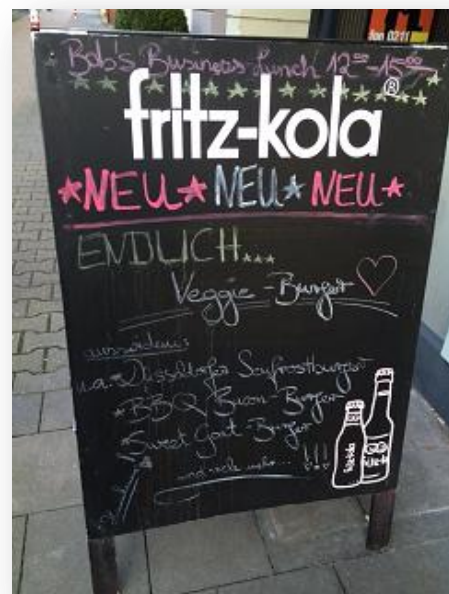 fon 0211
Bob's Business Lunch 12⁰⁰-15⁰⁰
fritz-kola®
*NEU* NEU* NEU*
ENDLICH...
Veggie-Burger
ausserdem:
u.a. Düsseldorfer Senfrostburger
*BBQ Bacon-Burger
Sweet Goat-Burger
und mehr... !!!
fritz-kola